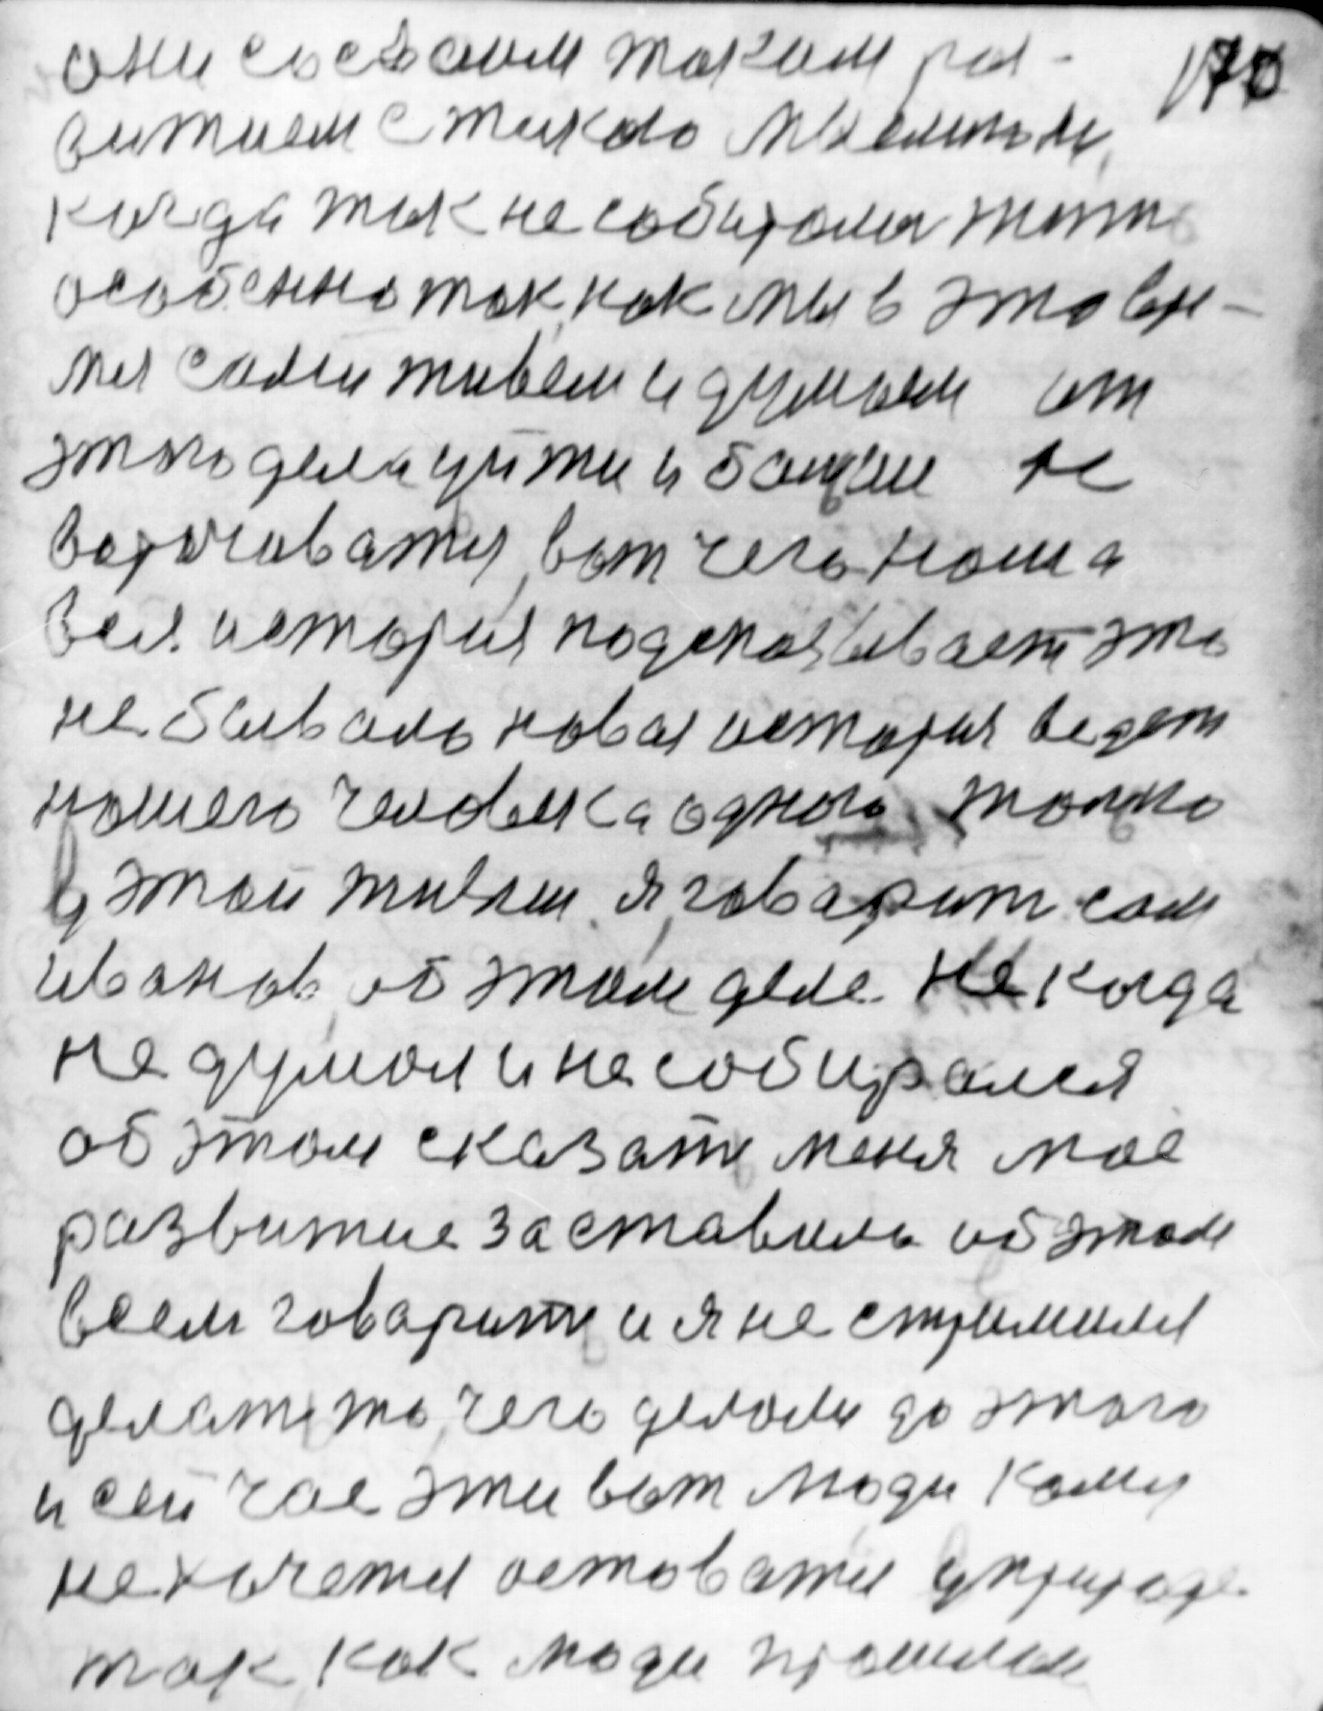 они со своим таким раз- 170
витием с
когда так не собирался жить
особенно так, как мы в это вре-
мя сами живем и думаем от
этого дела уйти и больше не
ворочоватся, вот чего наша
вся история подсказывает это
не бывало новая история ведет
нашего человека одного только
в этой жизни. я, говорит сам
иванов, об этом деле некогда
не думал и не собирался
об этом сказать меня мое
развитие заставило об этом
всем говорить и я не стримился
делать то, чего делали до этого
и сейчас эти вот люди кому
не хочется остоватся у природе
так, как люди прошлом